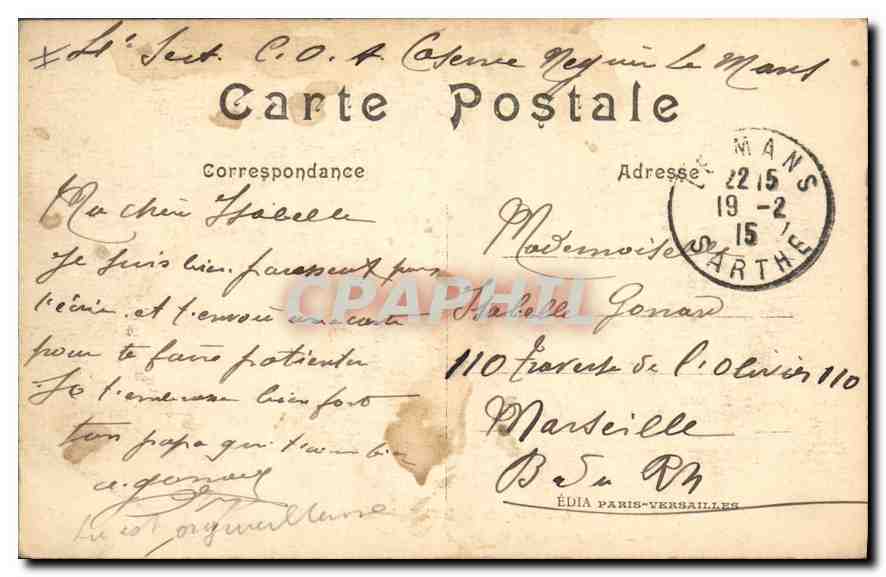 Sect. C.O.A. Caserne Négrier Le Mans
Carte Postale
Correspondance
Adresse
LE MANS
22 15
19 -2
15
SARTHE
Ma chère Isabelle
Je suis bien paressent pour
t'écrire et t'envoie une carte
pour te faire patienter
Je t'embrasse bien fort
ton papa qui t'aime bien
a. gonard
tu est orgueilleuse
Mademoiselle
Isabelle Gonard
110 Traverse de l'Olivier 110
Marseille
B du Rh
CPAPHIL
ÉDIA PARIS-VERSAILLES